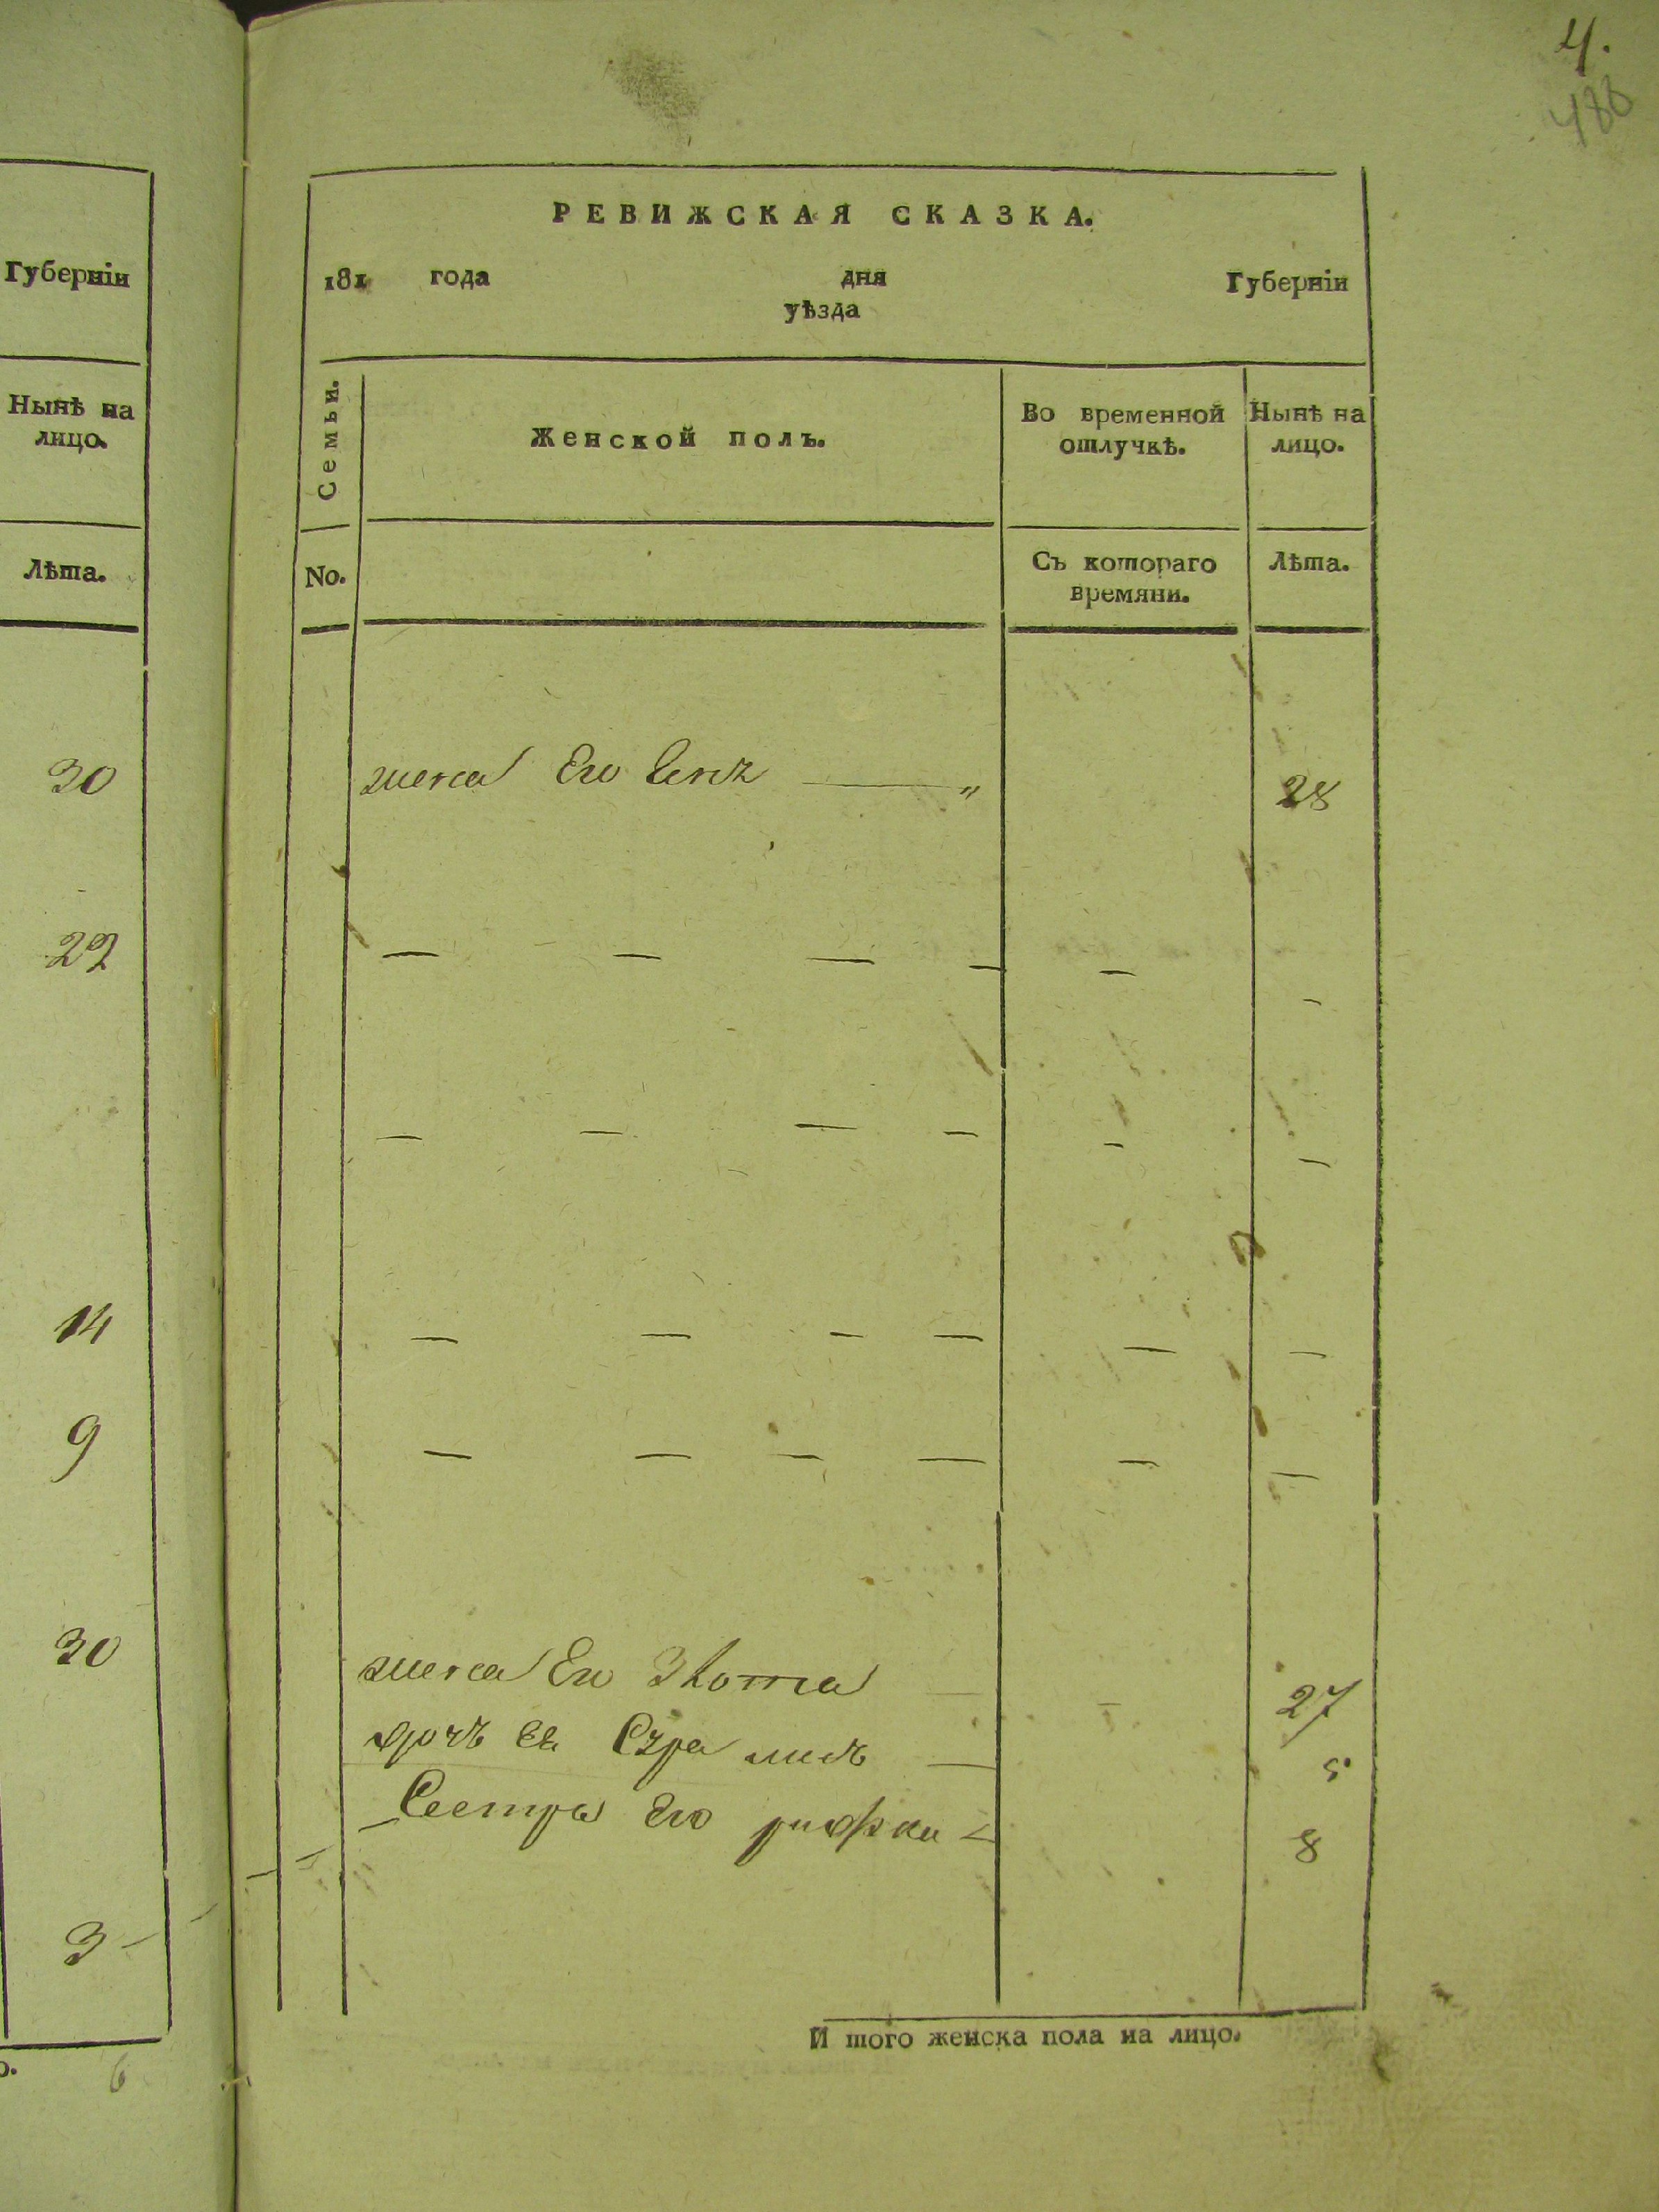 4.
488
Губерніи
Нынѣ на
лицо.
Лѣта.
30
22
14
9
30
3
6
РЕВИЖСКАЯ СКАЗКА.
181 года дня Губерніи
уѣзда
Семьи.
Женской полъ.
Во временной
отлучкѣ.
Нынѣ на
лицо.
No.
Съ котораго
времяни.
Лѣта.
жена Его 28
жена Его 27
дочь ея Сура 5
Сестра Его рифка 8
И того женска пола на лицо.